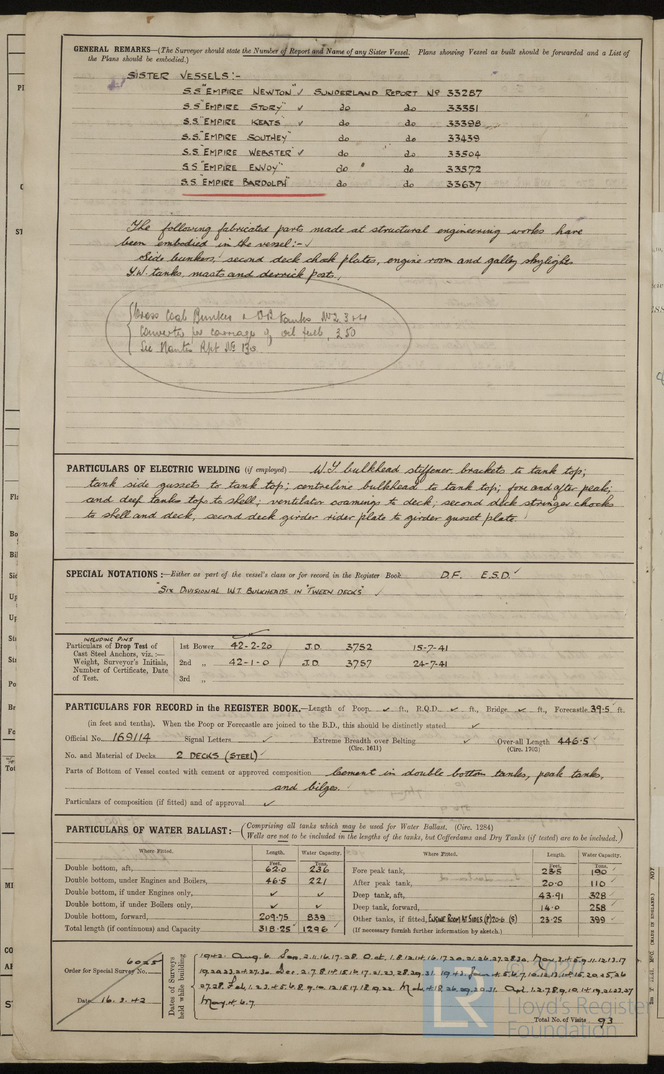 GENERAL REMARKS—(The Surveyor should state the Number of Report and Name of any Sister Vessel. Plans showing Vessel as built should be forwarded and a List of
the Plans should be embodied.)
SISTER VESSELS:-
S.S "EMPIRE NEWTON" ✓ SUNDERLAND REPORT No 33287
S.S "EMPIRE STORY" ✓ do do 33351
S.S. "EMPIRE KEATS" ✓ do do 33398
S.S. "EMPIRE SOUTHEY" do do 33439
S.S. "EMPIRE WEBSTER" ✓ do do 33504
S.S "EMPIRE ENVOY" do do 33572
S.S "EMPIRE BARDOLPH" do do 33637
The following fabricated parts made at structural engineering works have
been embodied in the vessel:- ✓
Side bunkers, second deck chock plates, engine room and galley skylight
F.W. tanks, masts and derrick posts.
Cross Coal Bunker & DB tanks No 2, 3 & 4
Converted for carriage of oil fuel, 3.50
See Nantes Rpt No 130
PARTICULARS OF ELECTRIC WELDING (if employed) W.T. bulkhead stiffener brackets to tank top;
tank side gussets to tank top; centreline bulkhead to tank top; fore and after peak,
and deep tanks tops to shell; ventilator coamings to deck; second deck stringer chocks
to shell and deck, second deck girder rider plate to girder gusset plate.
SPECIAL NOTATIONS:—Either as part of the vessel's class or for record in the Register Book D.F. E.S.D. ✓
"SIX DIVISIONAL W.T. BULKHEADS IN 'TWEEN DECKS" ✓
INCLUDING PINS
Particulars of Drop Test of 1st Bower 42-2-20 J.D. 3752 15-7-41
Cast Steel Anchors, viz. :—
Weight, Surveyor's Initials, 2nd „ 42-1-0 J.D. 3757 24-7-41
Number of Certificate, Date
of Test. 3rd „
PARTICULARS FOR RECORD in the REGISTER BOOK.—Length of Poop ✓ ft., R.Q.D. ✓ ft., Bridge ✓ ft., Forecastle 39.5 ft.
(in feet and tenths). When the Poop or Forecastle are joined to the B.D., this should be distinctly stated ✓
Official No. 169114 Signal Letters ✓ Extreme Breadth over Belting ✓ Over-all Length 446.5
(Circ. 1611) (Circ. 1703)
No. and Material of Decks 2 DECKS (STEEL)
Parts of Bottom of Vessel coated with cement or approved composition Cement in double bottom tanks, peak tanks,
and bilges.
Particulars of composition (if fitted) and of approval ✓
PARTICULARS OF WATER BALLAST:— (Comprising all tanks which may be used for Water Ballast. (Circ. 1284)
Wells are not to be included in the lengths of the tanks, but Cofferdams and Dry Tanks (if tested) are to be included.)
Where Fitted. Length. Water Capacity. Where Fitted. Length. Water Capacity.
Feet. Tons. Feet. Tons.
Double bottom, aft, 62.0 236 Fore peak tank, 23.5 190
Double bottom, under Engines and Boilers, 46.5 221 After peak tank, 20.0 110
Double bottom, if under Engines only, ✓ ✓ Deep tank, aft, 43.91 328
Double bottom, if under Boilers only, ✓ ✓ Deep tank, forward, 14.0 258
Double bottom, forward, 209.75 839 Other tanks, if fitted, ENGINE ROOM AT SIDES (P) 20.6 (S) 23.25 399
Total length (if continuous) and Capacity 318.25 1296 (If necessary furnish further information by sketch.)
Order for Special Survey No. 6025
Date 16.3.42
Dates of Surveys
held while building
1942. Aug. 6.
May. 4. 6. 7.
Total No. of Visits 93
© 2020
LR
Lloyd's Register
Foundation